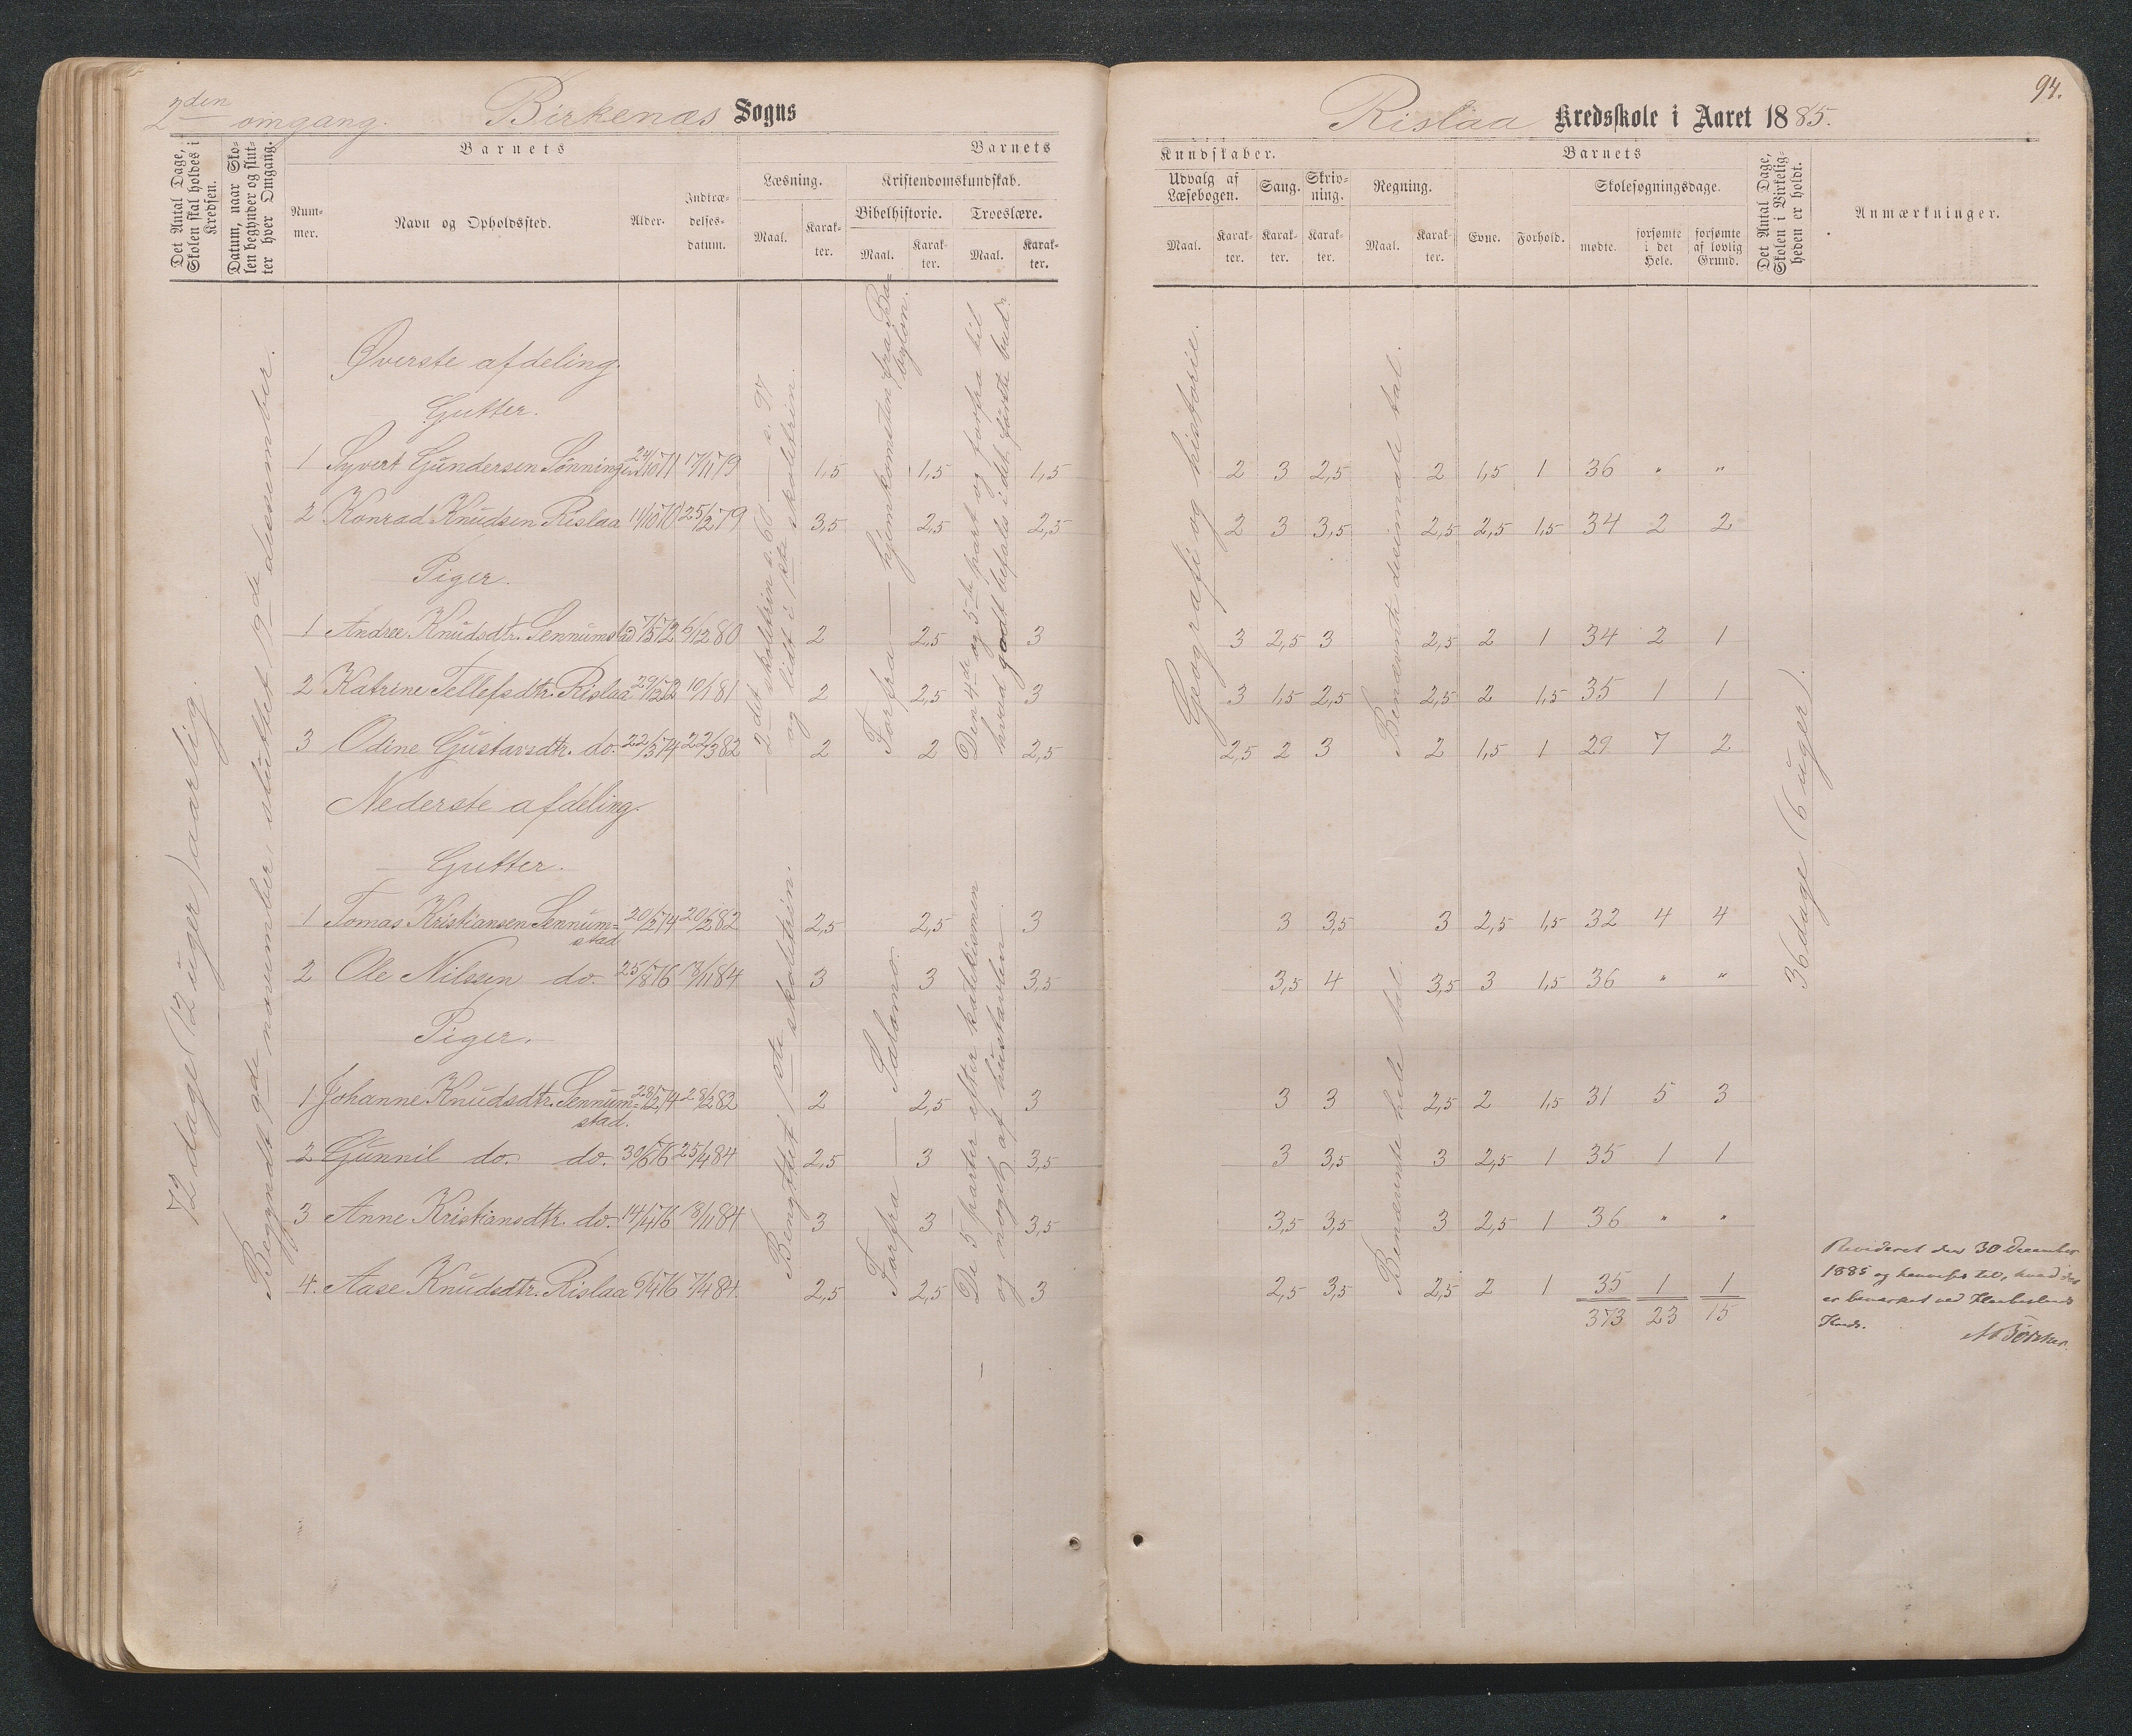 2den omgang. Birkenæs Sogns
Det Antal Dage, Skolen skal holdes i Kredsen.
Datum, naar Skolen begynder og slutter hver Omgang.
Barnets
Nummer.
Navn og Opholdssted.
Alder.
Indtrædelsesdatum.
Barnets
Læsning.
Maal.
Karakter.
Kristendomskundskab.
Bibelhistorie.
Maal.
Karakter.
Troeslære.
Maal.
Karakter.
72 dage (12 uger) aarlig.
Begyndt 9de november, sluttet 19de desember.
2det skoletrin s. 60 — s. 97
og lidt i 1ste skoletrin.
Forfra — hjemkomsten fra Babylon.
Den 4de og 5te part og forfra til
hvad godt befales i det første bud?
Øverste afdeling.
Gutter.
1 Syvert Gundersen Sønningen 24/10 71 17/11 79 1,5 1,5 1,5
2 Konrad Knudsen Rislaa 11/10 70 25/2 79 3,5 2,5 2,5
Piger.
1 Andree Knudsdtr. Sennumstad 7/5 72 6/12 80 2 2,5 3
2 Katrine Tellefsdtr. Rislaa 29/12 72 10/1 81 2 2,5 3
3 Odine Gustavsdtr. do. 22/3 74 22/3 82 2 2 2,5
Nederste afdeling.
Gutter.
Bengttet 1ste skoletrin.
Forfra — Salomo.
De 5 parter efter katekismen
og noget af hustavlen.
1 Tomas Kristiansen Sennum=
stad 20/2 74 20/2 82 2,5 2,5 3
2 Ole Nilsen do. 25/8 76 18/11 84 3 3 3,5
Piger.
1 Johanne Knudsdtr. Sennum=
stad. 28/2 74 28/2 82 2 2,5 3
2 Gunnil do. do. 30/6 76 25/4 84 2,5 3 3,5
3 Anne Kristiansdtr. do. 14/4 76 18/11 84 3 3 3,5
4. Aase Knudsdtr. Rislaa 6/4 76 7/4 84. 2,5 2,5 3
94.
Rislaa Kredsskole i Aaret 1885.
Kundskaber.
Udvalg af Læsebogen.
Maal.
Karakter.
Sang.
Karakter.
Skrivning.
Karakter.
Regning.
Maal.
Karakter.
Barnets
Evne.
Forhold.
Skolesøgningsdage.
mødte.
forsømte i det Hele.
forsømte af lovlig Grund.
Det Antal Dage, Skolen i Virkeligheden er holdt.
Anmærkninger.
Geografi og historie.
Benævnte desimale tal.
36 dage (6 uger).
2 3 2,5 2 1,5 1 36 " "
2 3 3,5 2,5 2,5 1,5 34 2 2
3 2,5 3 2,5 2 1 34 2 1
3 1,5 2,5 2,5 2 1,5 35 1 1
2,5 2 3 2 1,5 1 29 7 2
Benævnte hele tal.
3 3,5 3 2,5 1,5 32 4 4
3,5 4 3,5 3 1,5 36 " "
3 3 2,5 2 1,5 31 5 3
3 3,5 3 2,5 1 35 1 1
3,5 3,5 3 2,5 1 36 " "
2,5 3,5 2,5 2 1 35 1 1
373 23 15
Revideret den 30 December
1885 og henvises til, hvad der
er bemærket ved
Kreds.